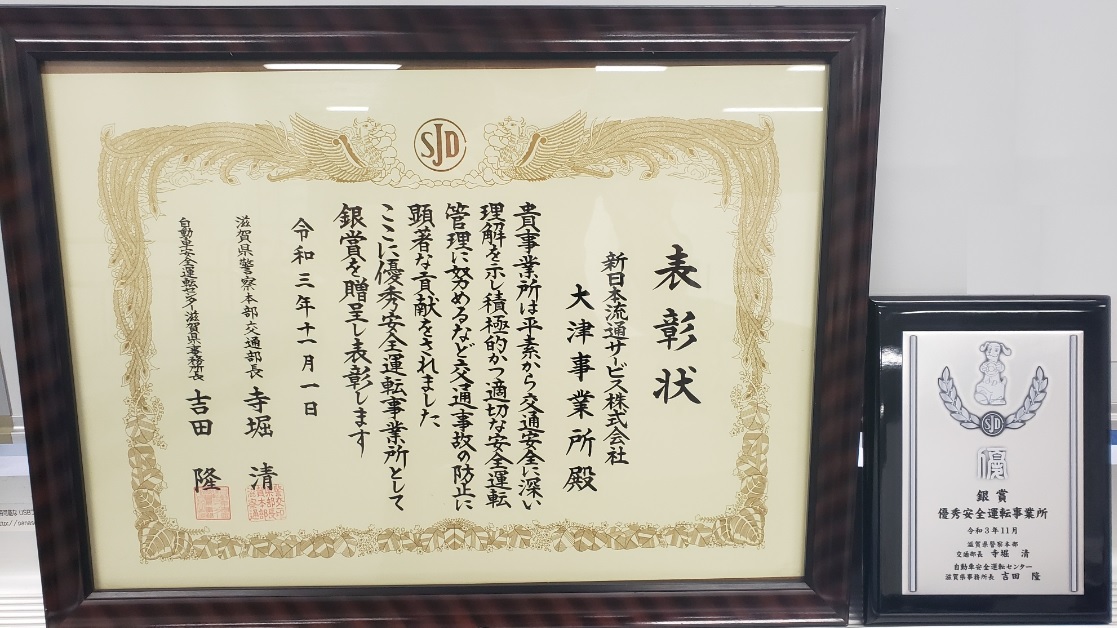 SJD
表彰状
新日本流通サービス株式会社
大津事業所殿
貴事業所は平素から交通安全に深い
理解を示し積極的かつ適切な安全運転
管理に努めるなど交通事故の防止に
顕著な貢献をされました
ここに優秀安全運転事業所として
銀賞を贈呈し表彰します
令和三年十一月一日
滋賀県警察本部交通部長 寺堀 清
自動車安全運転センター滋賀県事務所長 吉田 隆
SJD
優
銀賞
優秀安全運転事業所
令和3年11月
滋賀県警察本部
交通部長 寺堀 清
自動車安全運転センター
滋賀県事務所長 吉田 隆